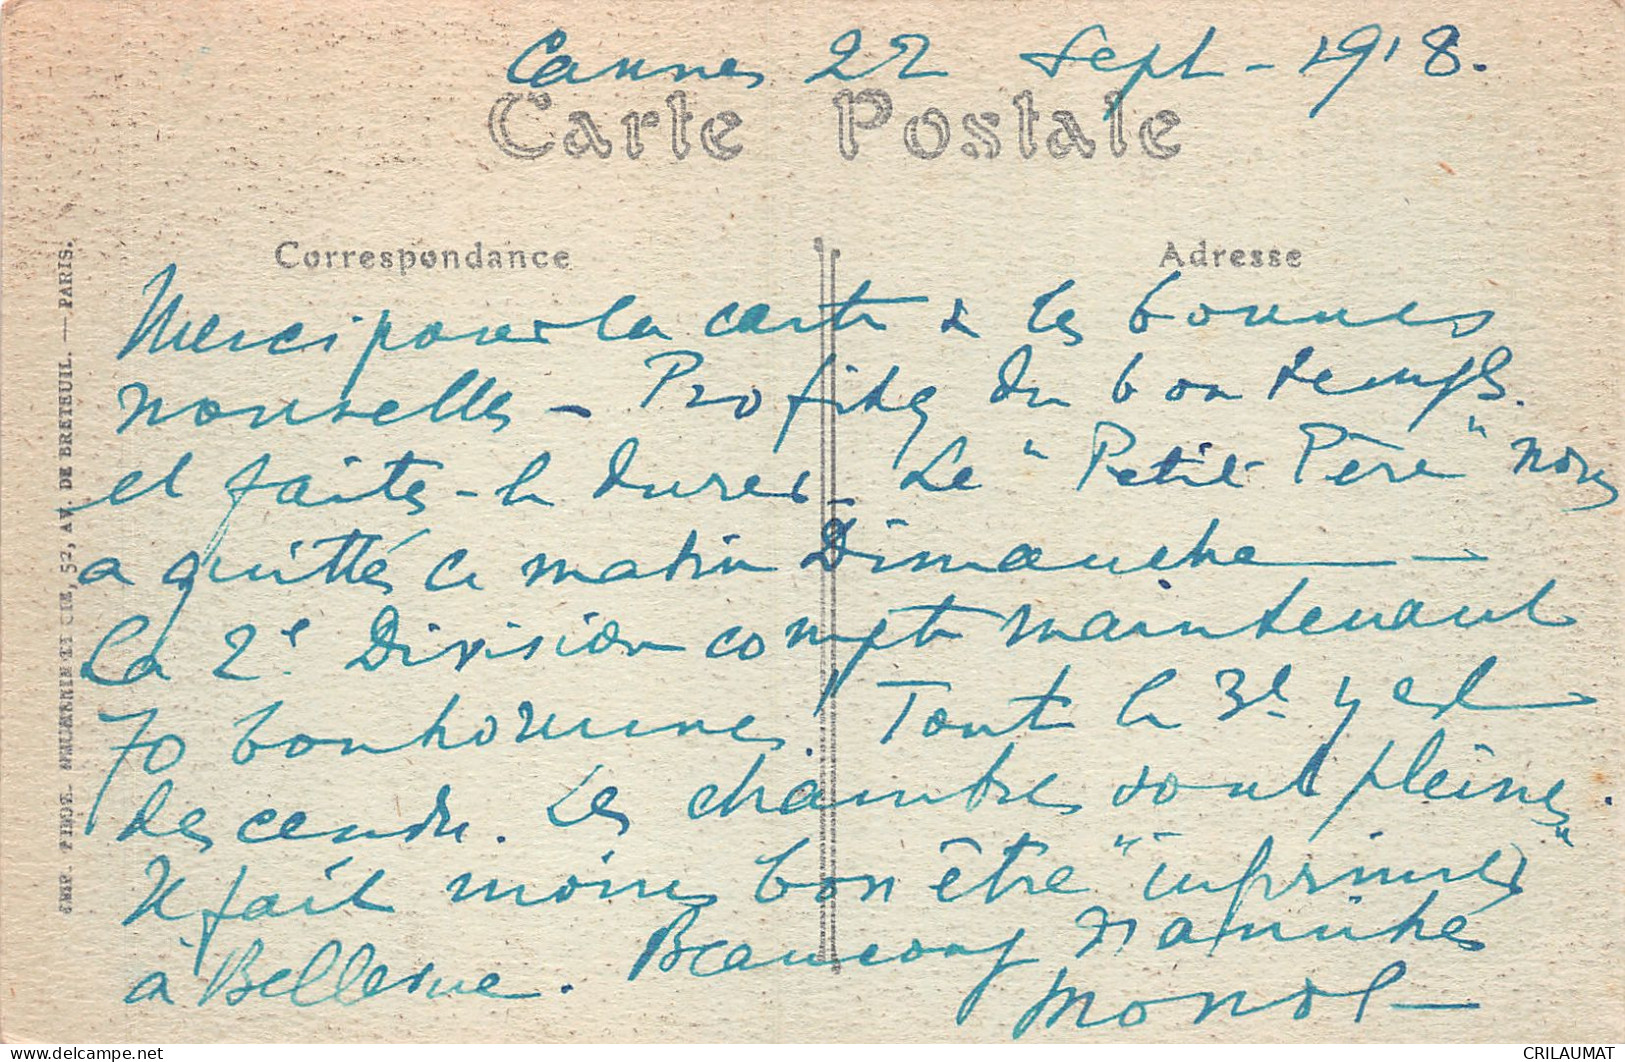 Cannes 22 Sept - 1918.
Carte Postale
Correspondance
Adresse
Merci pour la carte & les bonnes
nouvelles - Profitez du bon temps.
et faites-le durer - Le "Petit Père" nous
a quitté ce matin Dimanche —
La 2e Division compte maintenant
70 bonhommes! Tout le 3e y est
descendu. Les chambres sont pleines.
Il fait moins bon être "infirmier"
à Bellevue. Beaucoup d'amitiés
Monod
IMP. PHOT. NEURDEIN ET CIE, 52, AV. DE BRETEUIL. — PARIS.
delcampe.net
CRILAUMAT